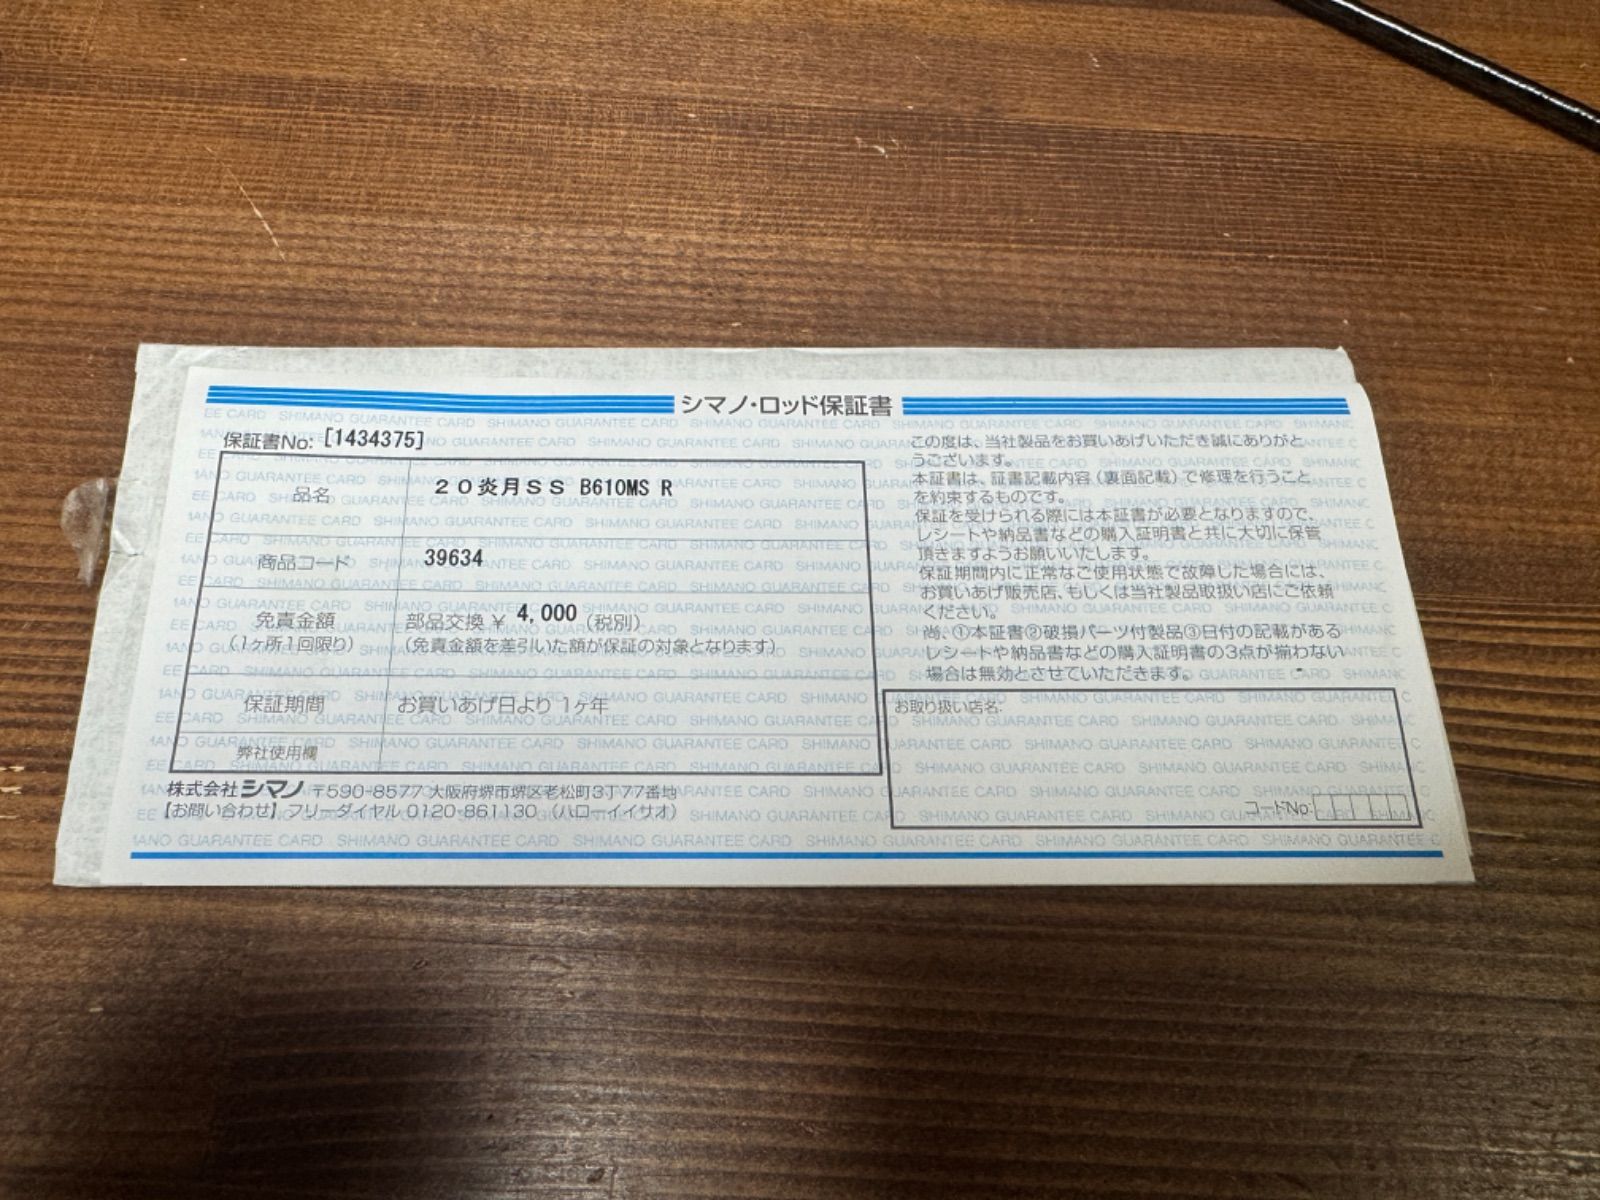 シマノ・ロッド保証書
保証書No: [1434375]
品名
20炎月SS B610MS R
商品コード
39634
免責金額
(1ヶ所1回限り)
部品交換 ¥ 4,000 (税別)
(免責金額を差引いた額が保証の対象となります)
保証期間
お買いあげ日より 1ヶ年
弊社使用欄
株式会社シマノ 〒590-8577 大阪府堺市堺区老松町3丁77番地
【お問い合わせ】フリーダイヤル 0120-861130 (ハローイイサオ)
この度は、当社製品をお買いあげいただき誠にありがと
うございます。
本証書は、証書記載内容(裏面記載)で修理を行うこと
を約束するものです。
保証を受けられる際には本証書が必要となりますので、
レシートや納品書などの購入証明書と共に大切に保管
頂きますようお願いいたします。
保証期間内に正常なご使用状態で故障した場合には、
お買いあげ販売店、もしくは当社製品取扱い店にご依頼
ください。
尚、①本証書②破損パーツ付製品③日付の記載がある
レシートや納品書などの購入証明書の3点が揃わない
場合は無効とさせていただきます。
お取り扱い店名:
コードNo:
SHIMANO GUARANTEE CARD